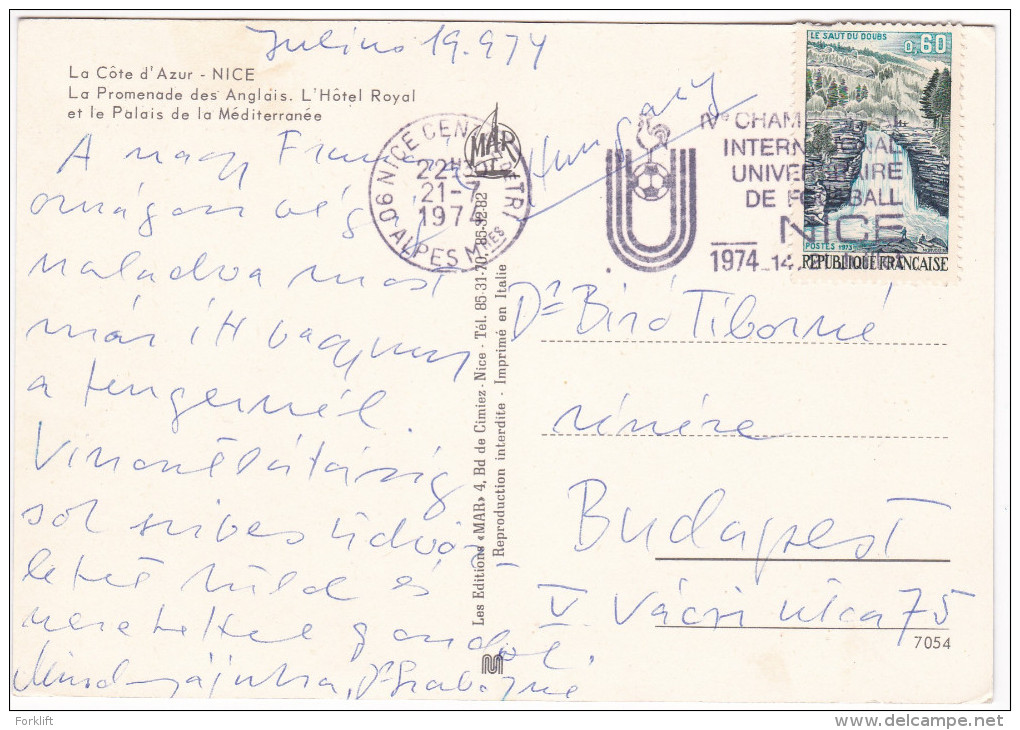 Julius 19. 974
La Côte d'Azur - NICE
La Promenade des Anglais. L'Hôtel Royal
et le Palais de la Méditerranée
A nagy Francia
országon vég
haladva most
már itt vagyunk
a tengernél.
Viszontlátásig
sok szives üdvöz
letet küld és
szeretettel gondol.
Mindnyájukra, Dr Szabógné
Hungary
06 NICE CENTRE DE TRI
22H
21-7
1974
ALPES MMES
MAR
IVe CHAMPIONNAT
INTERNATIONAL
UNIVERSITAIRE
DE FOOTBALL
NICE
1974 14
LE SAUT DU DOUBS
0,60
POSTES 1973
REPUBLIQUE FRANCAISE
Les Editions «MAR» 4, Bd de Cimiez - Nice - Tél. 85-31-70, 85-32-82
Reproduction interdite - Imprimé en Italie
Dr Biró Tiborné
részére
Budapest
V Váci utca 75
7054
Forklift
www.delcampe.net